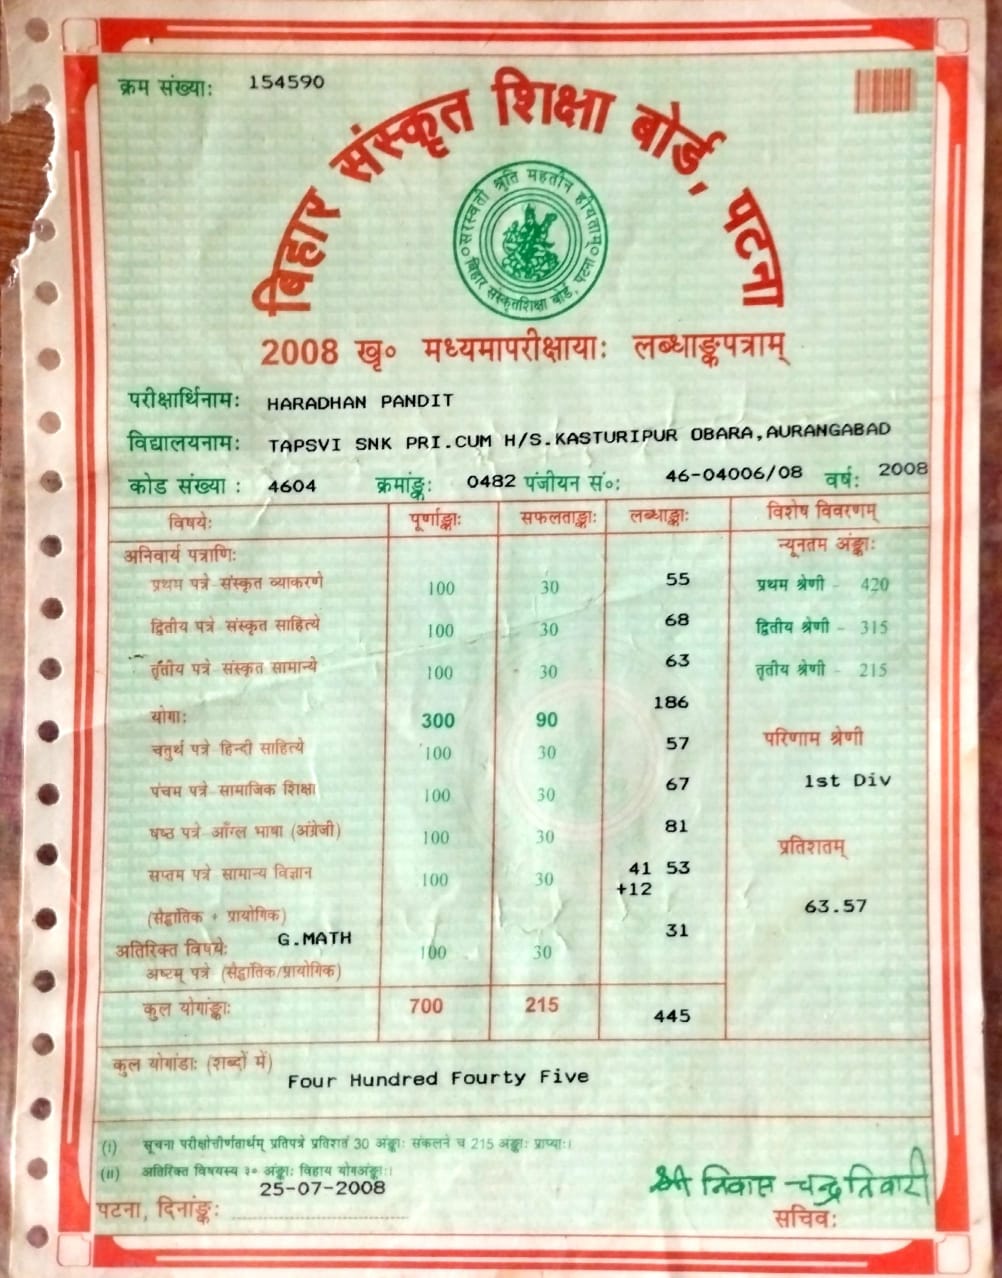 क्रम संख्या: 154590
बिहार संस्कृत शिक्षा बोर्ड, पटना
सरस्वती श्रुति महतीन हीयताम्
बिहार संस्कृतशिक्षा बोर्ड, पटना
2008 खृ० मध्यमापरीक्षायाः लब्धाङ्कपत्राम्
परीक्षार्थिनामः HARADHAN PANDIT
विद्यालयनामः TAPSVI SNK PRI.CUM H/S.KASTURIPUR OBARA,AURANGABAD
कोड संख्या : 4604 क्रमांङ्कः 0482 पंजीयन सं०: 46-04006/08 वर्षः 2008
विषयेः पूर्णाङ्काः सफलताङ्काः लब्धाङ्काः विशेष विवरणम्
अनिवार्य पत्राणिः न्यूनतम अंङ्काः
प्रथम पत्रे संस्कृत व्याकरणे 100 30 55 प्रथम श्रेणी - 420
द्वितीय पत्रे संस्कृत साहित्ये 100 30 68 द्वितीय श्रेणी - 315
तृतीय पत्रे संस्कृत सामान्ये 100 30 63 तृतीय श्रेणी - 215
योगाः 300 90 186
चतुर्थ पत्रे हिन्दी साहित्ये 100 30 57 परिणाम श्रेणी
पंचम पत्रे सामाजिक शिक्षा 100 30 67 1st Div
षष्ठ पत्रे आँग्ल भाषा (अंग्रेजी) 100 30 81 प्रतिशतम्
सप्तम पत्रे सामान्य विज्ञान 100 30 41 53
+12
(सैद्धांतिक + प्रायोगिक) 63.57
अतिरिक्त विषयेः G.MATH 100 30 31
अष्टम् पत्रे (सैद्धांतिक/प्रायोगिक)
कुल योगांङ्काः 700 215 445
कुल योगांडाः (शब्दों में) Four Hundred Fourty Five
(i) सूचना परीक्षोत्तीर्णतार्थम् प्रतिपत्रे प्रतिशतं 30 अङ्काः संकलने च 215 अङ्काः प्राप्याः।
(ii) अतिरिक्त विषयस्य ३० अङ्काः विहाय योगअंङ्काः।
पटना, दिनांङ्कः 25-07-2008
श्री निवास चन्द्र तिवारी
सचिवः